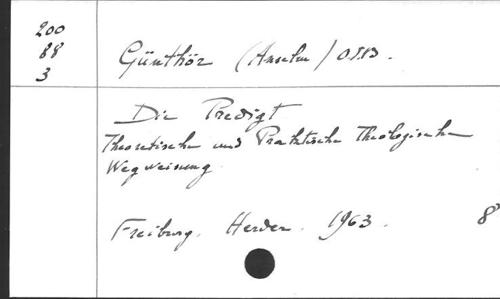 200
88
3
Günthör (Anselm) O.S.B.
Die Predigt
Theoretische und Praktische Theologische
Wegweisung
Freiburg. Herder. 1963. 8°